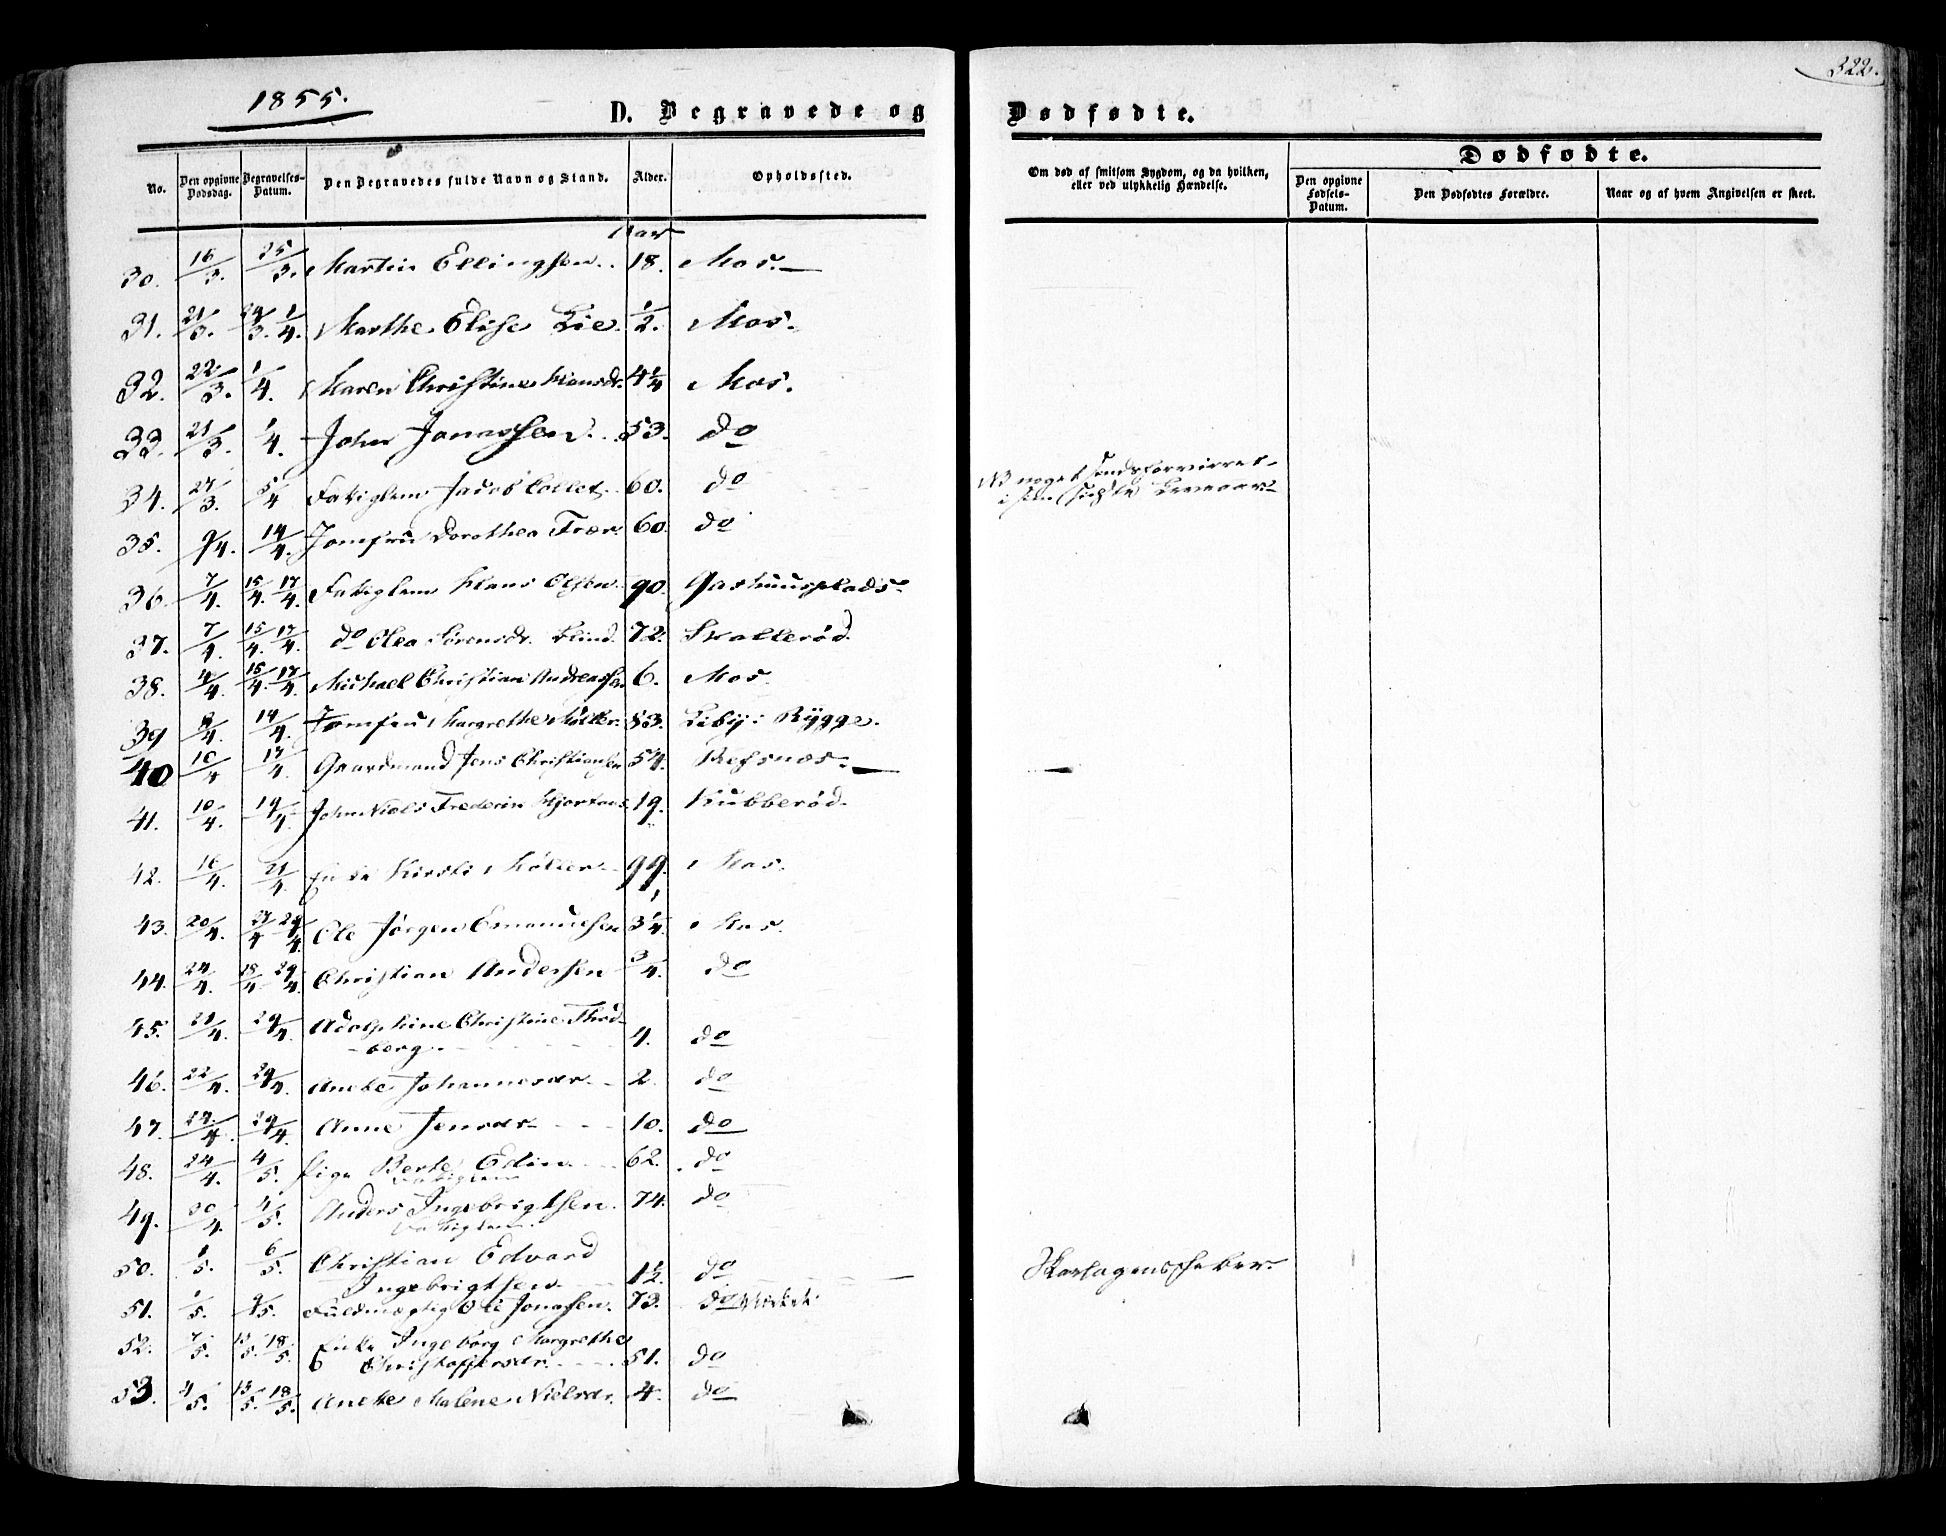 1855.
322.
D. Begravede og Dødfødte.
No.
Den opgivne Dødsdag.
Begravelses-Datum.
Den Begravedes fulde Navn og Stand.
Alder.
Opholdssted.
Om død af smitsom Sygdom, og da hvilken, eller ved ulykkelig Hændelse.
Dødfødte.
Den opgivne Fødsels-Datum.
Den Dødfødtes Forældre.
Naar og af hvem Angivelsen er skeet.
Aar
30. 16/3. 25/3. Martin Ellingsen. 18. Mos.
31. 21/3. 29/3. 1/4. Marthe Elise Lie. 1/2. Mos.
32. 22/3. 1/4. Maren Christine Hansdr. 4 1/4 Mos.
33. 21/3. 1/4. John Jonassen. 53. do
34. 27/3. 5/4 Fatiglem Jacob Collet. 60. do
35. 9/4. 14/4. Jomfru Dorothea 60. do
36. 7/4. 15/4. 17/4. Fatiglem Hans Olsen. 90. Gashuusplads
37. 7/4. 15/4. 17/4. do Olea Sørensdr. Blind. 72. Skallerød.
38. 4/4. 15/4. 17/4. Michael Christian Andreassen 6. Mos.
39 9/4. 14/4. Jomfru Margrethe Møller. 83. Carlby i Rygge.
40 10/4 17/4. Gaardmand Jens Christiansen 54. Refsnæs.
41. 10/4. 19/4. John Niels Frederik 19. Kubberød.
42. 16/4. 21/4. Enke Kirsti Møller 99. Mos.
43. 20/4. 27/4 29/4. Ole Jørgen Emanuelsen 3 1/4. Mos.
44. 24/4. 28/4 29/4. Christian Andersen 3/4. do
45. 21/4. 29/4. Adolphine Christine Thod-
berg. 4. do
46. 22/4. 29/4. Anette Johannesdr. 2. do
47. 24/4. 29/4. Anne Jensdr. 10. do
48. 24/4. 4/5. Pige Berte Edin. 62. do
Fatiglem
49. 30/4. 4/5. Anders Ingebrigtsen. 74. do
Fatiglem.
50. 1/5. 6/5. Christian Edvard
Ingebrigtsen 1 1/2. do Skarlagensfeber.
51. 1/5. 9/5. Fuldmægtig Ole Jonassen. 73. do
52. 7/5. 13/5. 18/5. Enke Ingeborg Margrethe
Christoffersdr. 51. do
53. 4/5. 13/5. 18/5. Anette Malene Nielsdr. 4. do